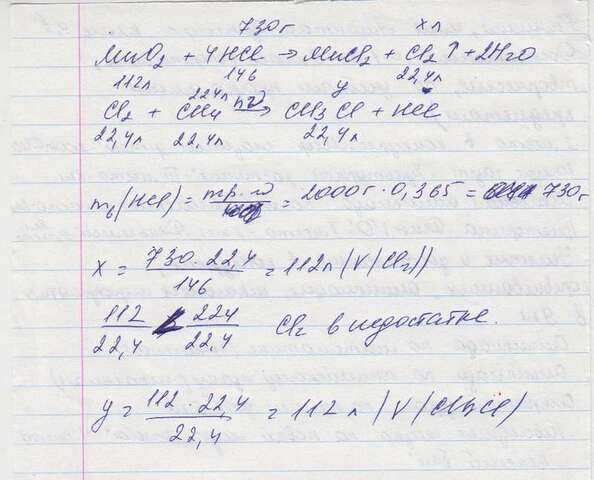 730г хл
MnO2 + 4HCl → MnCl2 + Cl2↑ + 2H2O
146 22,4л
112л 224л у
Cl2 + CH4 hν→ CH3Cl + HCl
22,4л 22,4л 22,4л
m6(HCl) = mр.ω = 2000г · 0,365 = 730г
x = 730 · 22,4 / 146 = 112л (V(Cl2))
112 / 22,4 < 224 / 22,4 Cl2 в недостатке.
y = 112 · 22,4 / 22,4 = 112 л (V(CH3Cl)